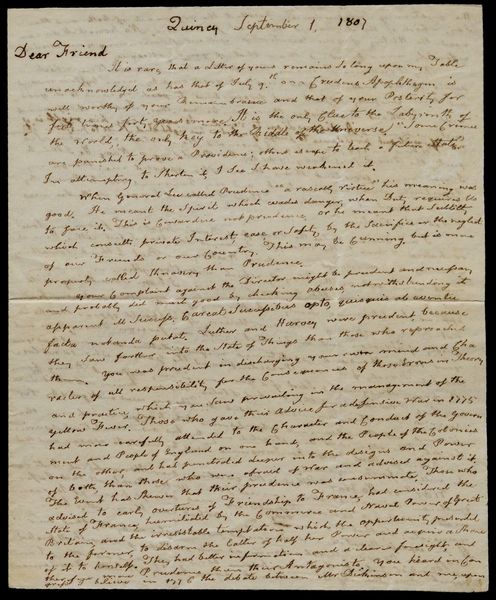 Quincy September 1, 1807
Dear Friend
It is rare, that a Letter of yours remains so long upon my Table
unacknowledged as has that of July 9th. our Crudens Apophthegm is
well worthy of your Remembrance and that of your Posterity for
four score years more. It is the only Clue to the Labyrinth of
the World, the only key to the Riddle of the Universe. "Some Crimes
are punished to prove a Providence: others escape to teach a future State.
In attempting to shorten it, I see I have weakened it.
When General Lee called Prudence "a rascally Virtue" his meaning was
good. He meant the Spirit which evades danger, when Duty requires Us
to face it. This is Cowardice not prudence, or he meant that subtility
which consults private Interest, ease or Safety, by the Sacrifice or the neglect
of our Friends or our Country. This may be Cunning but is more
properly called Knavery than Prudence.
Your Complaint against the Director might be prudent and necessary
and probably did much good by checking abuses, notwithstanding its
apparent ill Success. Careat Successibus opto, quisquis ab eventu
facta notanda putat. Luther and Harvey were prudent because
they saw farther into the State of Things than those who reproached
them. You was prudent in discharging your own mind and Cha
racter of all responsibility for the Consequences of those Errors in Theory
and practice, which you seen prevailing in the management of the
yellow Fever. Those who gave their Advice for a defensive War in 1775
had more carefully attended to the Character and Conduct of the Govern
ment and People of England on one hand, and the People of the Colonies
on the other, and had penetrated deeper into the designs and Power
of both, than those who were afraid of War and advised against it.
The Event has shewn that their prudence was consummate. Those who
advised to early overtures of Friendship to France, had considered the
State of France, humiliated by the Commerce and Naval Power of Great
Britain and the irresistable temptation which the opportunity presented
to the former, to disarm the latter of half her Power and acquire a share
of it to herself. They had better information and a clearer foresight, and
therefore more Prudence than their Antagonists. You heard in Con
gress I believe in 1776 the debate between Mr Dickinson and me, upon